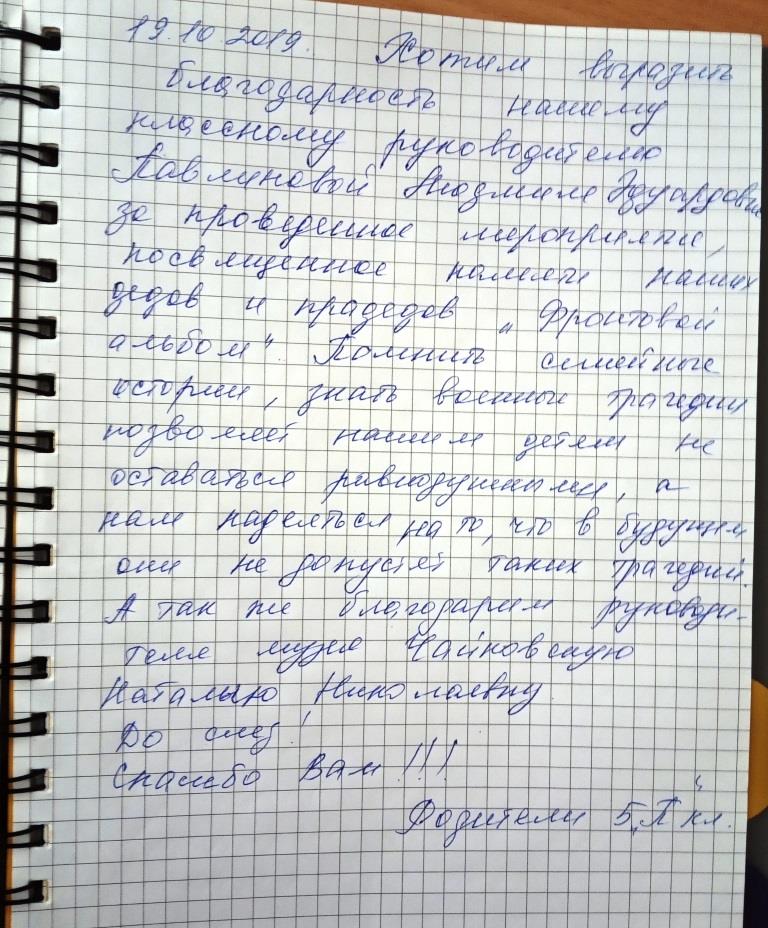 19.10.2019. Хотим выразить
благодарность нашему
классному руководителю
Павлиновой Людмиле Эдуардовне
за проведенное мероприятие,
посвященное памяти наших
дедов и прадедов „Фронтовой
альбом“. Помнить семейные
истории, знать военные трагедии
позволяет нашим детям не
оставаться равнодушными, а
нам надеяться на то, что в будущем
они не допустят таких трагедий.
А так же благодарим руководи-
теля музея Чайковскую
Наталью Николаевну.
До слёз!
Спасибо Вам!!!
Родители 5„П“ кл.